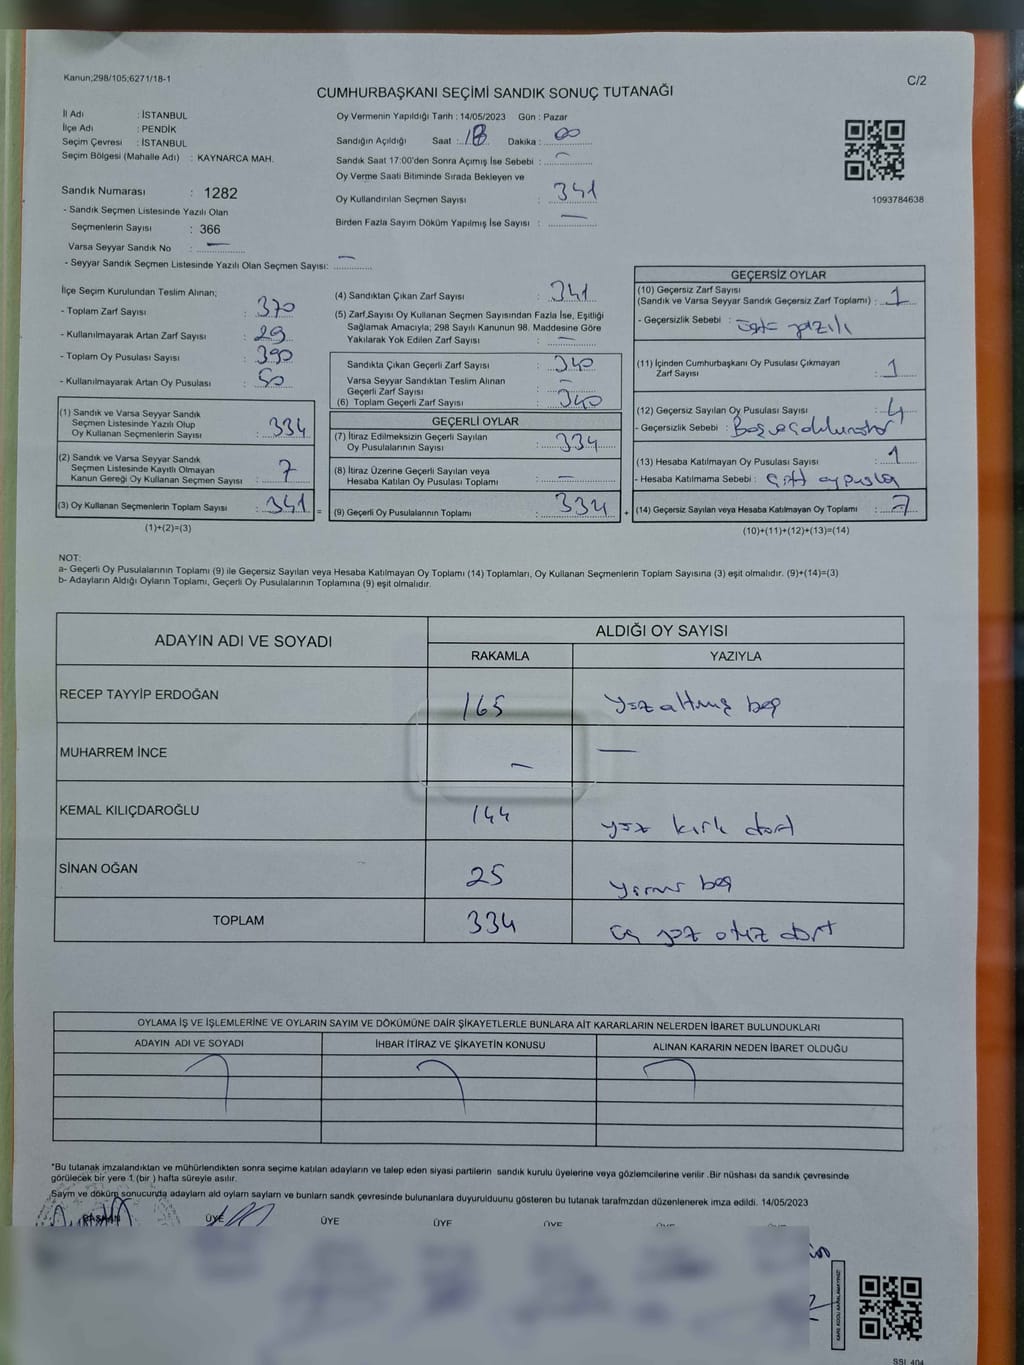 Kanun;298/105;6271/18-1
C/2
CUMHURBAŞKANI SEÇİMİ SANDIK SONUÇ TUTANAĞI
İl Adı : İSTANBUL
İlçe Adı : PENDİK
Seçim Çevresi : İSTANBUL
Seçim Bölgesi (Mahalle Adı) : KAYNARCA MAH.
Sandık Numarası : 1282
- Sandık Seçmen Listesinde Yazılı Olan
Seçmenlerin Sayısı : 366
Varsa Seyyar Sandık No : —
- Seyyar Sandık Seçmen Listesinde Yazılı Olan Seçmen Sayısı: —
Oy Vermenin Yapıldığı Tarih : 14/05/2023 Gün : Pazar
Sandığın Açıldığı Saat : 18 Dakika : 00
Sandık Saat 17:00'den Sonra Açımış İse Sebebi : —
Oy Verme Saati Bitiminde Sırada Bekleyen ve
Oy Kullandırılan Seçmen Sayısı : 341
Birden Fazla Sayım Döküm Yapılmış İse Sayısı : —
1093784638
İlçe Seçim Kurulundan Teslim Alınan;
- Toplam Zarf Sayısı : 370
- Kullanılmayarak Artan Zarf Sayısı : 29
- Toplam Oy Pusulası Sayısı : 390
- Kullanılmayarak Artan Oy Pusulası : 50
(1) Sandık ve Varsa Seyyar Sandık
Seçmen Listesinde Yazılı Olup
Oy Kullanan Seçmenlerin Sayısı : 334
(2) Sandık ve Varsa Seyyar Sandık
Seçmen Listesinde Kayıtlı Olmayan
Kanun Gereği Oy Kullanan Seçmen Sayısı : 7
(3) Oy Kullanan Seçmenlerin Toplam Sayısı : 341 =
(1)+(2)=(3)
(4) Sandıktan Çıkan Zarf Sayısı : 341
(5) Zarf Sayısı Oy Kullanan Seçmen Sayısından Fazla İse, Eşitliği
Sağlamak Amacıyla; 298 Sayılı Kanunun 98. Maddesine Göre
Yakılarak Yok Edilen Zarf Sayısı : —
Sandıkta Çıkan Geçerli Zarf Sayısı : 340
Varsa Seyyar Sandıktan Teslim Alınan : —
Geçerli Zarf Sayısı
(6) Toplam Geçerli Zarf Sayısı : 340
GEÇERLİ OYLAR
(7) İtiraz Edilmeksizin Geçerli Sayılan
Oy Pusulalarının Sayısı : 334
(8) İtiraz Üzerine Geçerli Sayılan veya
Hesaba Katılan Oy Pusulası Toplamı : —
(9) Geçerli Oy Pusulalarının Toplamı : 334 +
GEÇERSİZ OYLAR
(10) Geçersiz Zarf Sayısı
(Sandık ve Varsa Seyyar Sandık Geçersiz Zarf Toplamı) : 1
- Geçersizlik Sebebi : üstü yazılı
(11) İçinden Cumhurbaşkanı Oy Pusulası Çıkmayan
Zarf Sayısı : 1
(12) Geçersiz Sayılan Oy Pusulası Sayısı : 4
- Geçersizlik Sebebi :
(13) Hesaba Katılmayan Oy Pusulası Sayısı : 1
- Hesaba Katılmama Sebebi : Çift oy pusula
(14) Geçersiz Sayılan veya Hesaba Katılmayan Oy Toplamı : 7
(10)+(11)+(12)+(13)=(14)
NOT:
a- Geçerli Oy Pusulalarının Toplamı (9) ile Geçersiz Sayılan veya Hesaba Katılmayan Oy Toplamı (14) Toplamları, Oy Kullanan Seçmenlerin Toplam Sayısına (3) eşit olmalıdır. (9)+(14)=(3)
b- Adayların Aldığı Oyların Toplamı, Geçerli Oy Pusulalarının Toplamına (9) eşit olmalıdır.
ADAYIN ADI VE SOYADI ALDIĞI OY SAYISI
RAKAMLA YAZIYLA
RECEP TAYYİP ERDOĞAN 165 yüz altmış beş
MUHARREM İNCE — —
KEMAL KILIÇDAROĞLU 144 yüz kırk dört
SİNAN OĞAN 25 yirmi beş
TOPLAM 334 üç yüz otuz dört
OYLAMA İŞ VE İŞLEMLERİNE VE OYLARIN SAYIM VE DÖKÜMÜNE DAİR ŞİKAYETLERLE BUNLARA AİT KARARLARIN NELERDEN İBARET BULUNDUKLARI
ADAYIN ADI VE SOYADI İHBAR İTİRAZ VE ŞİKAYETİN KONUSU ALINAN KARARIN NEDEN İBARET OLDUĞU
*Bu tutanak imzalandıktan ve mühürlendikten sonra seçime katılan adayların ve talep eden siyasi partilerin sandık kurulu üyelerine veya gözlemcilerine verilir .Bir nüshası da sandık çevresinde
görülecek bir yere 1 (bir ) hafta süreyle asılır.
Sayım ve döküm sonucunda adayların ald oyların sayların ve bunların sandk çevresinde bulunanlara duyurulduunu gösteren bu tutanak tarafmzdan düzenlenerek imza edildi. 14/05/2023
BAŞKAN ÜYE ÜYE ÜYE ÜYE ÜYE ÜYE
SSI 404